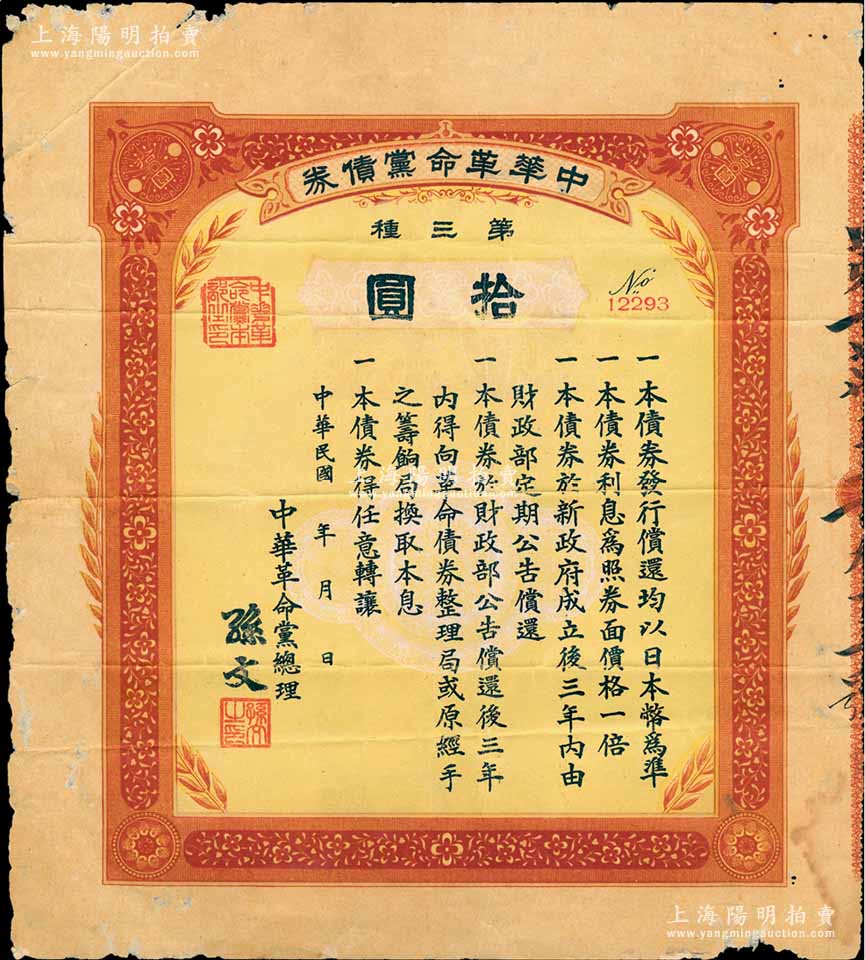 上海陽明拍賣
www.yangmingauction.com
中華革命黨債券
第三種
拾圓
No
12293
中華革命黨本部之印
一本債券發行償還均以日本幣爲準
一本債券利息爲照券面價格一倍
一本債券於新政府成立後三年內由
財政部定期公告償還
一本債券於財政部公告償還後三年
內得向革命債券整理局或原經手
之籌餉局換取本息
一本債券得任意轉讓
中華民國 年 月 日
中華革命黨總理
孫文
孫文之印
上海陽明拍賣
www.yangmingauction.com
上海陽明拍賣
www.yangmingauction.com